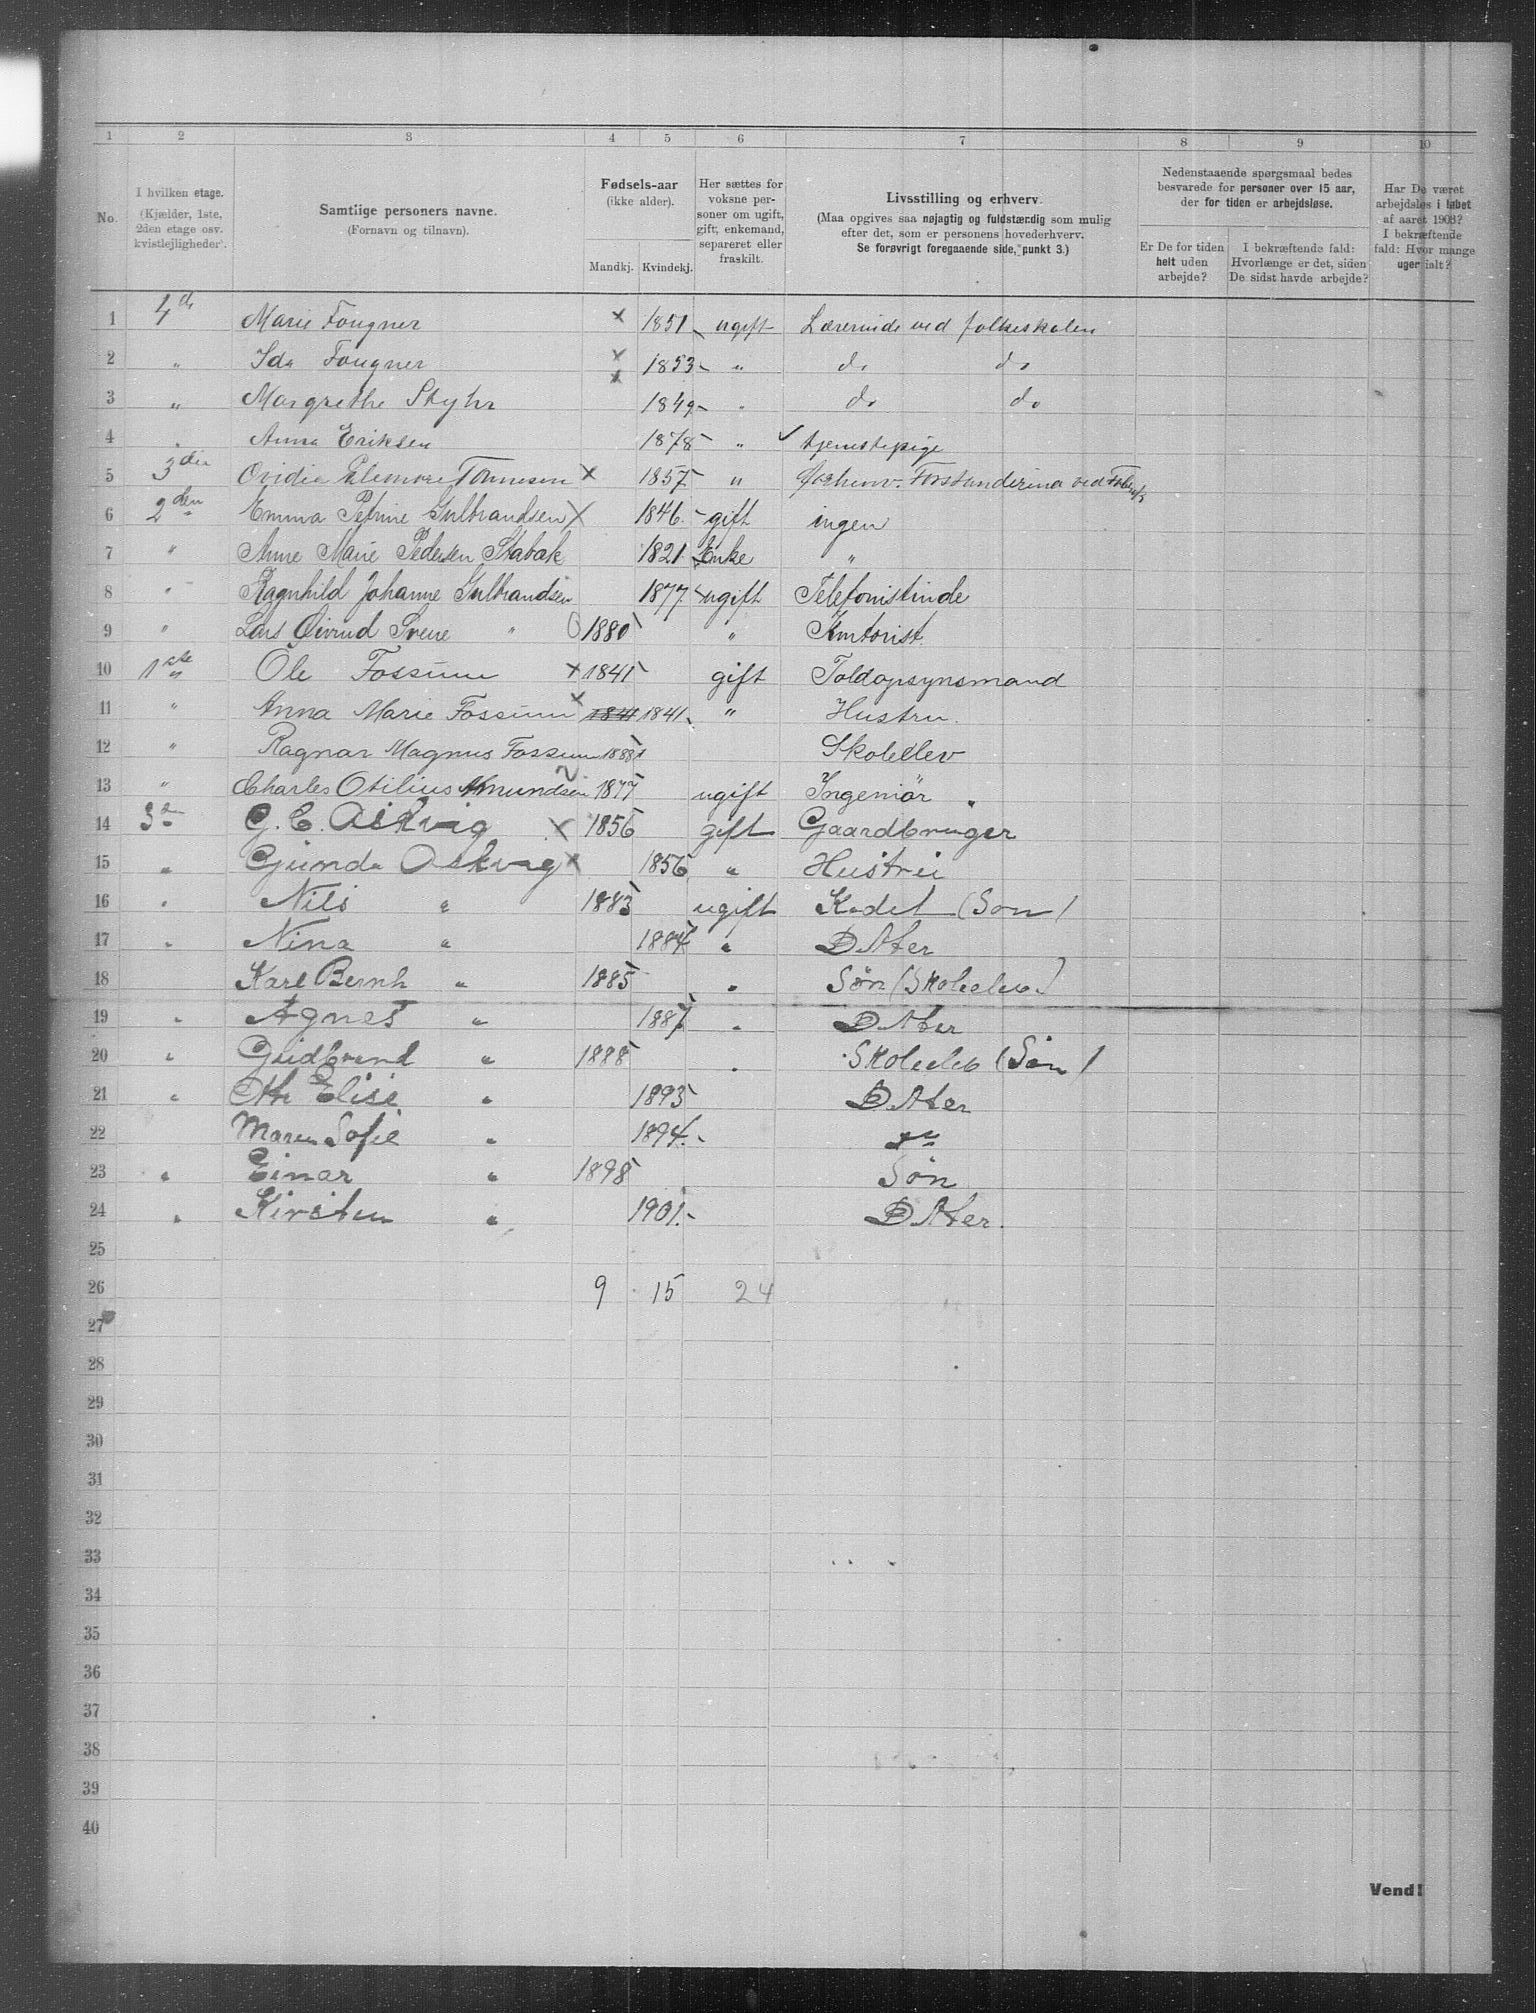 1 2 3 4 5 6 7 8 9 10
No.
I hvilken etage.
(Kjælder, 1ste,
2den etage osv.
kvistlejligheder).
Samtlige personers navne.
(Fornavn og tilnavn).
Fødsels-aar
(ikke alder).
Mandkj. Kvindekj.
Her sættes for
voksne per-
soner om ugift,
gift, enkemand,
separeret eller
fraskilt.
Livsstilling og erhverv.
(Maa opgives saa nøjagtig og fuldstændig som mulig
efter det, som er personens hovederhverv.
Se forøvrigt foregaaende side, punkt 3.)
Nedenstaaende spørgsmaal bedes
besvarede for personer over 15 aar,
der for tiden er arbejdsløse.
Er De for tiden
helt uden
arbejde?
I bekræftende fald:
Hvorlænge er det, siden
De sidst havde arbejde?
Har De været
arbejdsløs i løbet
af aaret 1903?
I bekræftende
fald: Hvor mange
uger ialt?
1 4de Marie Fougner x 1851 ugift Lærerinde ved folkeskolen
2 " Ida Fougner x 1853 " do do
3 " Margrethe Skyhr x 1849 " do do
4 " Anna Eriksen 1878 " tjenestepige
5 3die Ovidia Eleonore Tønnesen x 1857 " Forstanderina ved
6 2den Emma Petrine Gulbrandsen x 1846 gift ingen
7 " Anne Marie Pedersen Stabæk 1821 Enke "
8 " Ragnhild Johanne Gulbrandsen 1877 ugift Telefonistinde
9 " Lars Øivind " 1880 " Kontorist
10 1ste Ole Fossum x 1841 gift Toldopsynsmand
11 " Anna Marie Fossum x 1841 1841 " Hustru.
12 " Ragnar Magnus Fossum 1888 Skoleelev
13 " Charles Otilius Amundsen 1877 ugift Ingeniør
14 3de G. C. Askvig x 1856 gift Gaardbruger
15 " Gunda Askvig x 1856 " Hustru
16 " Nils " 1883 ugift Kadet (Søn)
17 " Nina " 1884 " Datter
18 Karl Bernh " 1885 " Søn (Skoleelev)
19 " Agnes " 1887 " Datter
20 " Gudbrand " 1888 " Skoleelev (Søn)
21 " Elise " 1893 Datter
22 Maren Sofie " 1894 do
23 " Einar " 1898 Søn
24 " Kirsten " 1901 Datter.
25
26 9 15 24
27
28
29
30
31
32
33
34
35
36
37
38
39
40
Vend!